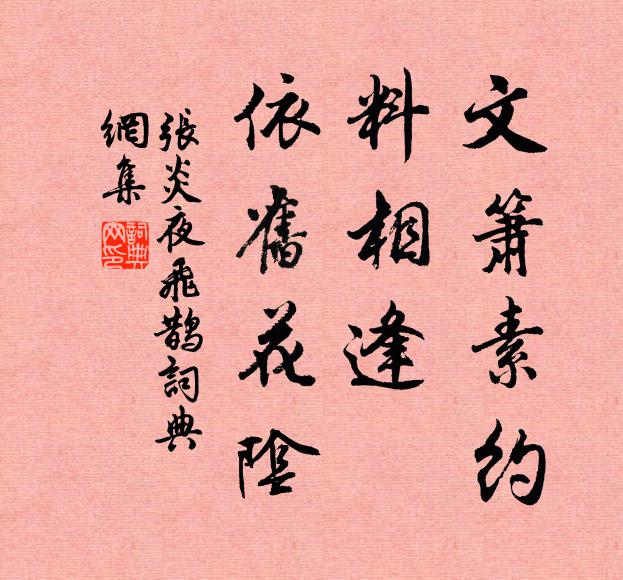 文簫素約
料相逢
依舊花陰
張炎夜飛鵲詞典
網集
詞典
网印